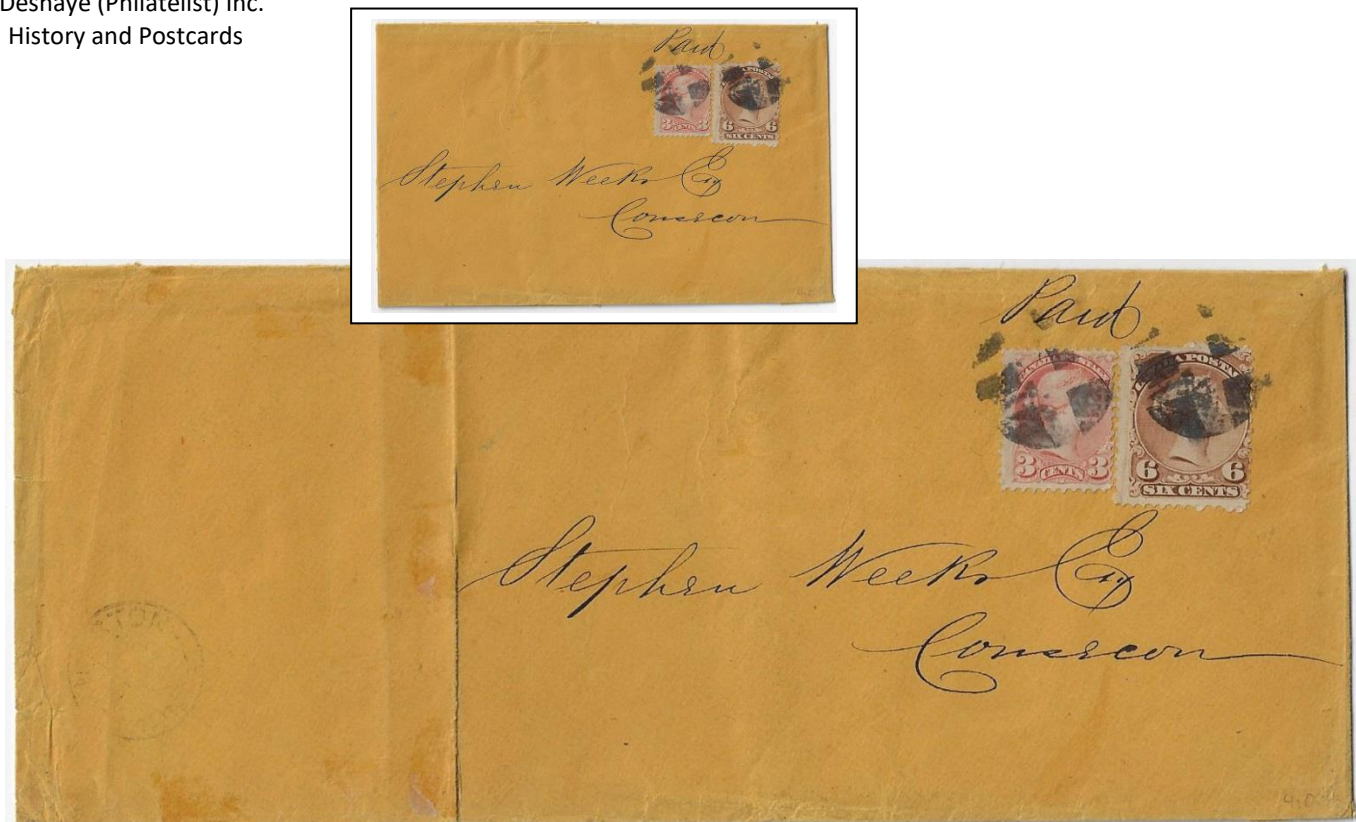 Deshaye (Philatelist) Inc.
History and Postcards
Paid
3 CENTS 3
6 6
SIX CENTS
Stephen Weeks Esq
Consecon
Paid
CANADA POSTAGE
3 CENTS 3
6 6
SIX CENTS
Stephen Weeks Esq
Consecon